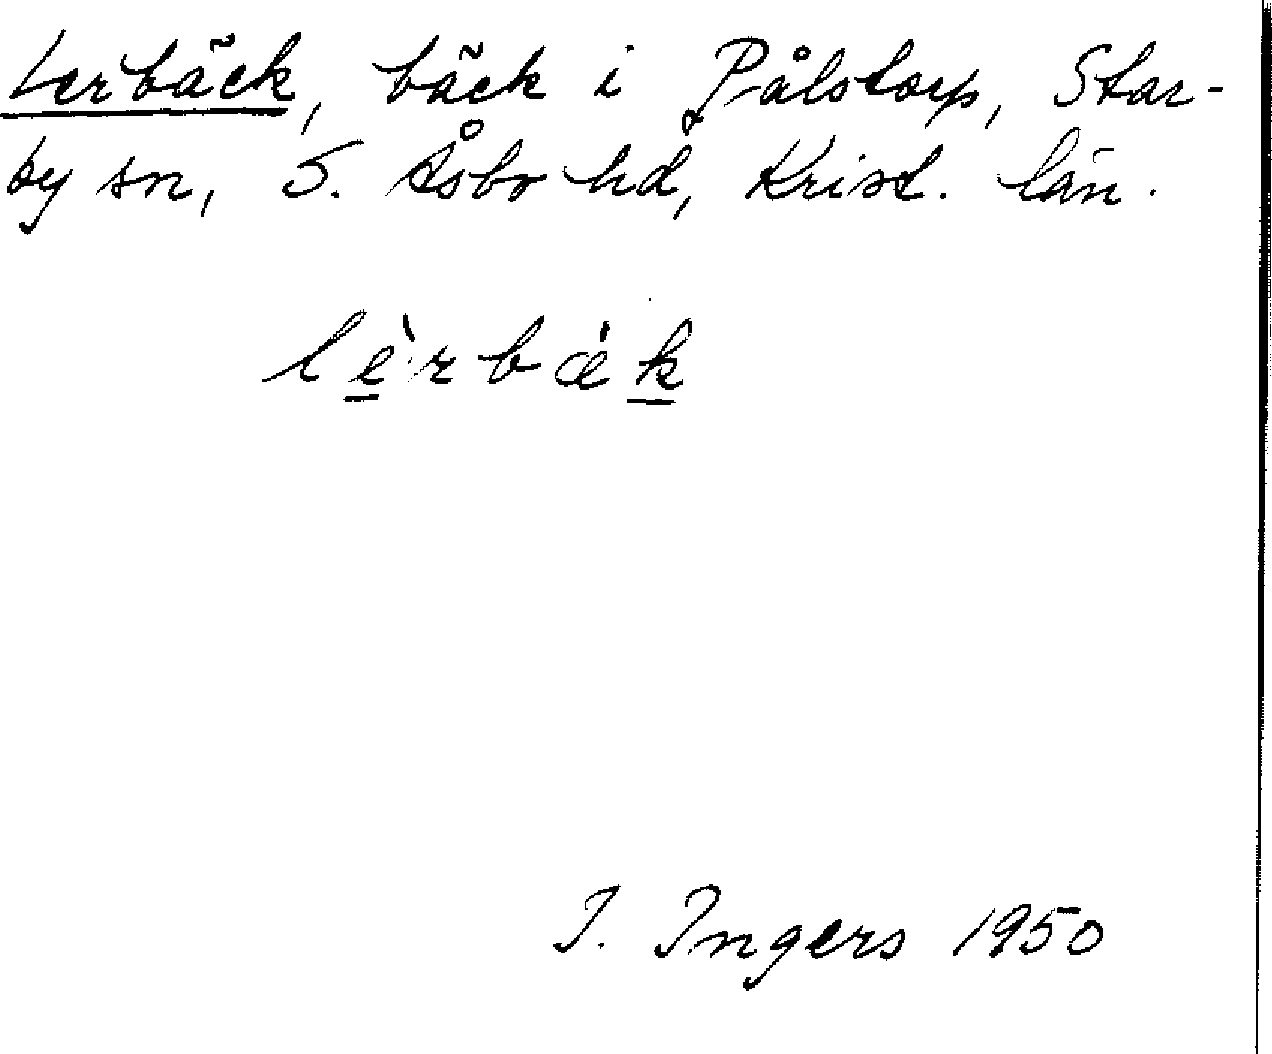 Lerbäck, bäck i Pålstorp, Star-
by sn, S. Åsbo hd, Krist. län.
lèrbæ̀k
I. Ingers 1950